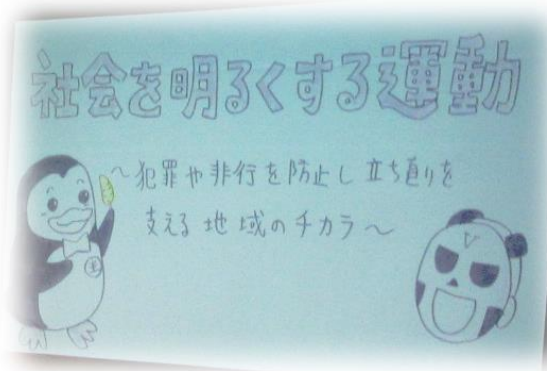 社会を明るくする運動
～犯罪や非行を防止し立ち直りを
支える地域のチカラ～